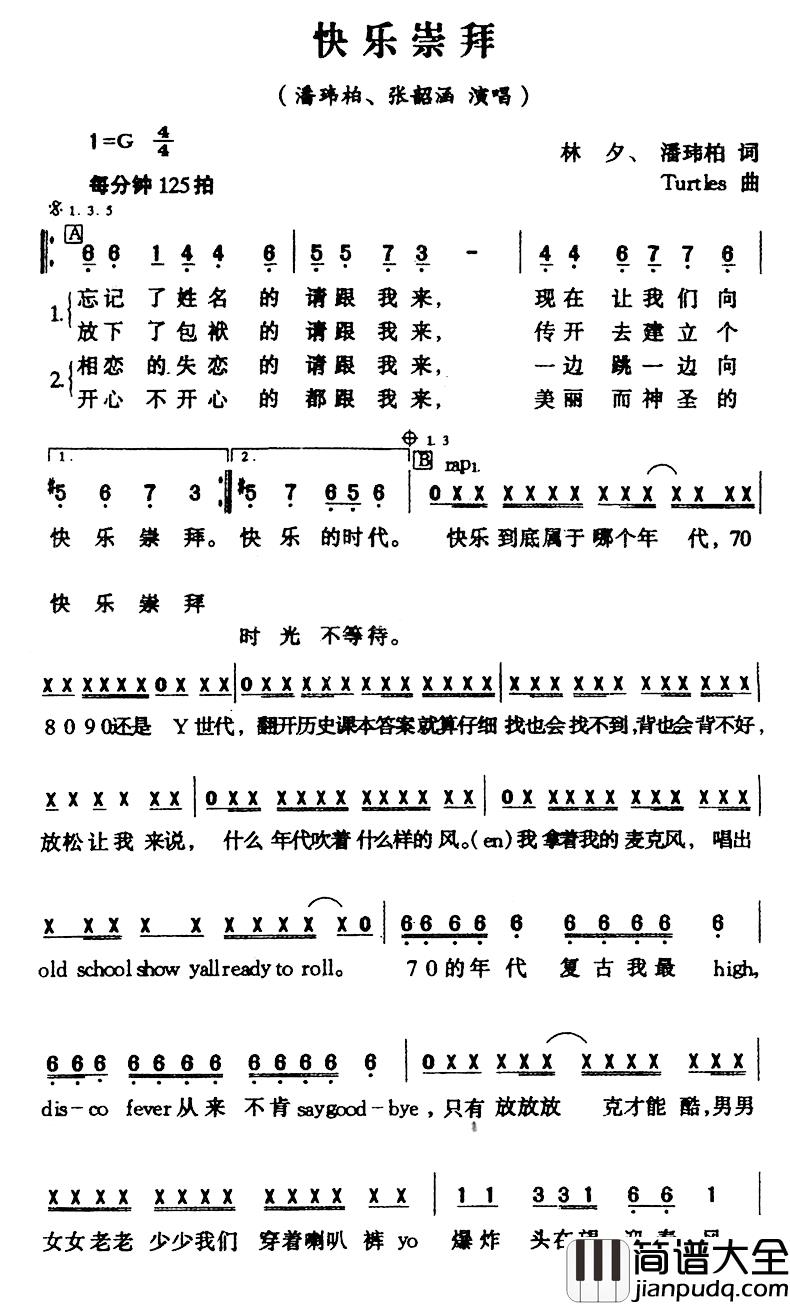 快乐崇拜
（潘玮柏、张韶涵 演唱）
1=G 4/4
林 夕、 潘玮柏 词
每分钟 125拍
Turtles 曲
1. 3. 5
A
6 6 1 4 4 6 | 5 5 7 3 - | 4 4 6 7 7 6 |
1. 忘记 了姓名 的请跟 我来, 现在 让我们向
放下 了包袱 的请跟 我来, 传开 去建立个
2. 相恋 的失恋 的请跟 我来, 一边 跳一边向
开心 不开心 的都跟 我来, 美丽 而神圣的
1. 2. 1. 3
B rap1.
#5 6 7 3 :| #5 7 6 5 6 | 0 X X X X X X X X X X X X X X
快 乐 崇 拜。 快 乐 的时代。 快乐 到底属于 哪个年 代, 70
快 乐 崇 拜
时 光 不等待。
X X X X X X 0 X X X | 0 X X X X X X X X X X X X X X | X X X X X X X X X X X X X X |
8 0 9 0还是 Y 世代, 翻开历史课本答案就算仔细 找也会找不到,背也会背不好,
X X X X X X | 0 X X X X X X X X X X X X X | 0 X X X X X X X X X X X X |
放松让我 来说, 什么 年代吹着什么样的风。(en)我拿着我的麦克风, 唱出
X X X X X X X X X X X 0 | 6 6 6 6 6 6 6 6 6 6
old school show yall ready to roll。 7 0 的 年 代 复 古 我 最 high,
6 6 6 6 6 6 6 6 6 6 6 6 | 0 X X X X X X X X X X X X
dis-co fever从来 不肯 saygood-bye, 只有 放放放 克才能 酷,男男
X X X X X X X X X X X X X X | 1 1 3 3 1 6 6 1
女女老老 少少我们 穿着喇叭 裤 yo 爆炸 头在
简谱大全
jianpudq.com